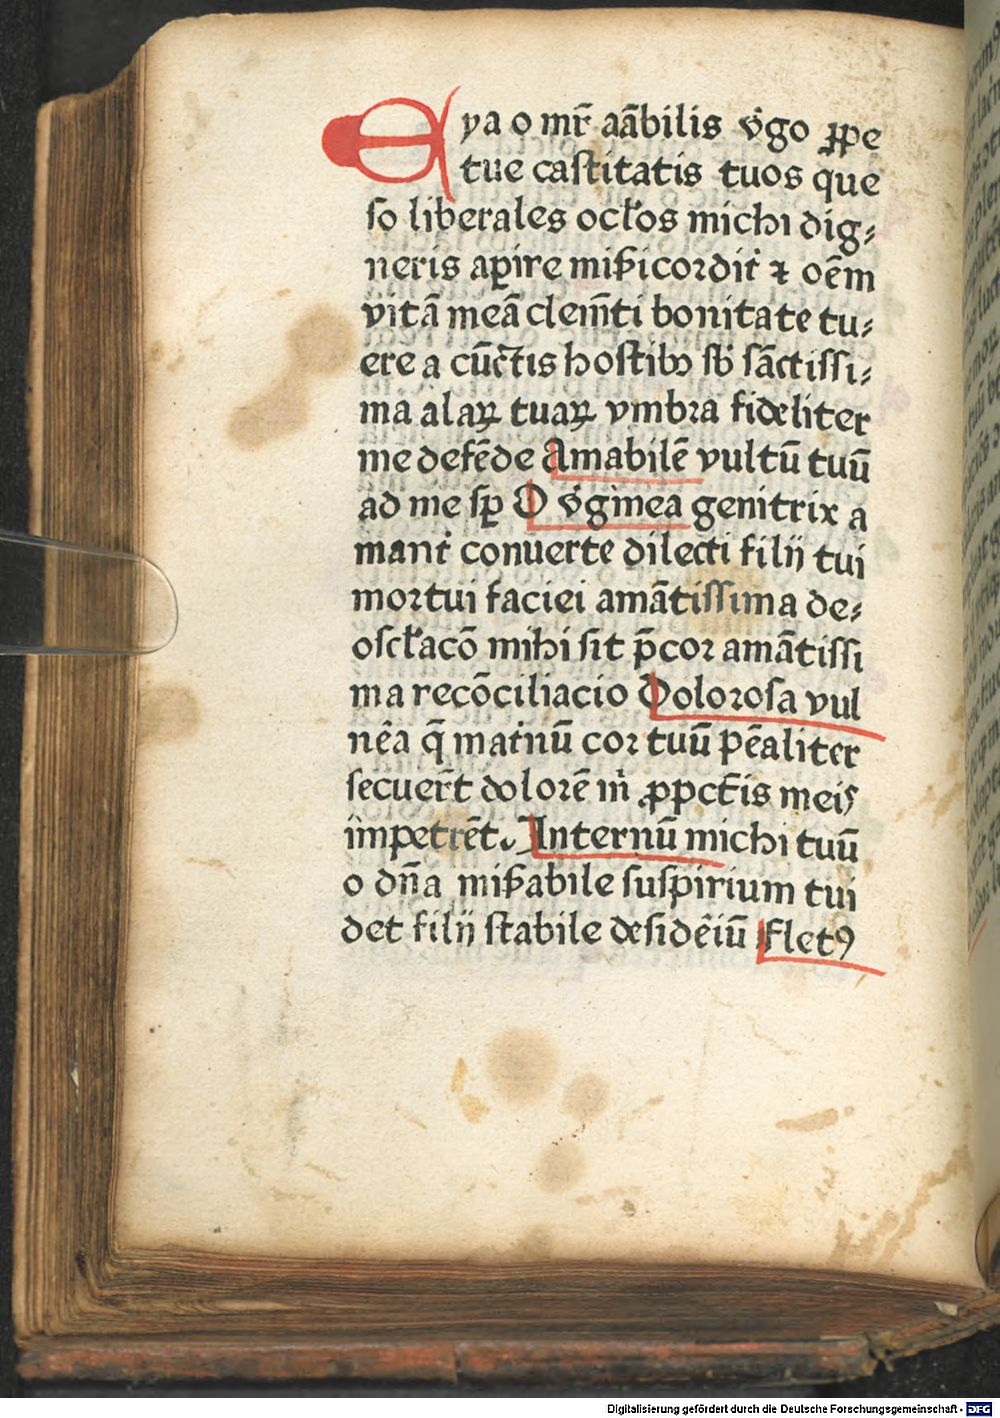 Eya o mr̄ aābilis v̇go ꝓpe
tue castitatis tuos que
so liberales ocl̄os michi dig⸗
neris aꝑire miẜicordit᷑ ⁊ oēm
vitā meā clem̄ti bonitate tu⸗
ere a cūct̄is hostibꝫ sb̄ sāctissi⸗
ma alaꝝ tuaꝝ vmbra fideliter
me defēde Amabilē vultū tuū
ad me sꝑ O v̇ginea genitrix a
mant᷑ conuerte dilecti filij tui
mortui faciei amātissima de⸗
oscl̄acō mihi sit p̄cor amātissi
ma recōciliacio Dolorosa vul
nēa q̄ mat᷑nū cor tuū pēaliter
secuer̄t dolorē m̄ ꝓ pct̄is meis
impetrēt. Internū michi tuū
o dn̄a miẜabile suspirium tui
det filij stabile desidēiū Fletꝯ
Digitalisierung gefördert durch die Deutsche Forschungsgemeinschaft - DFG